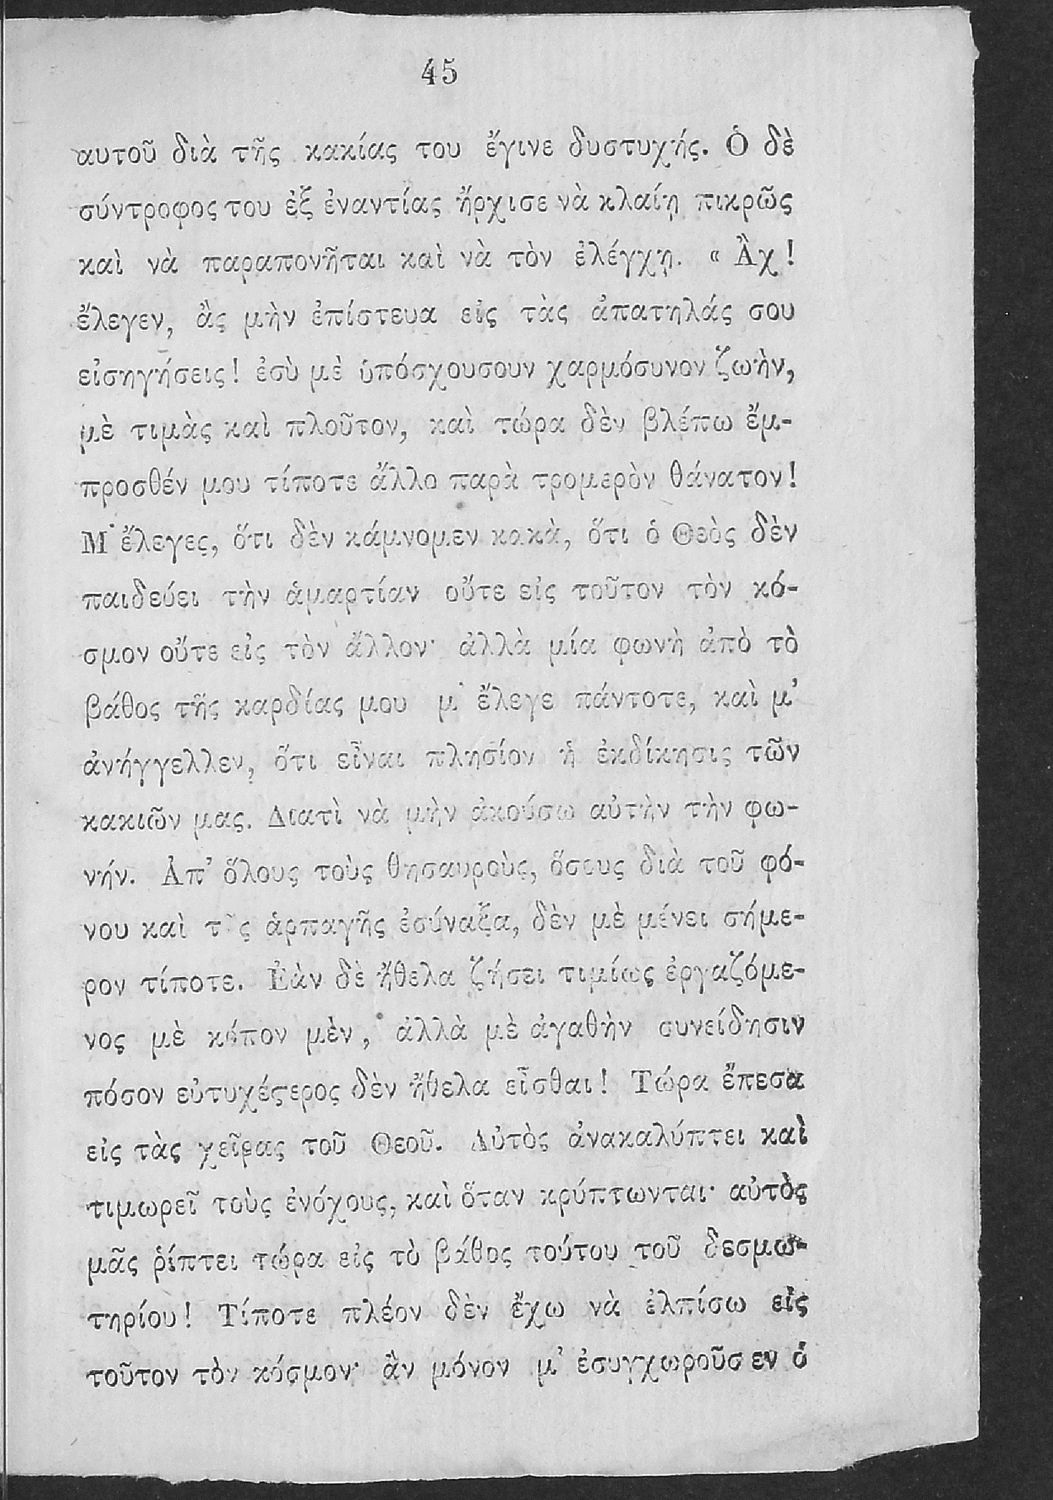 45
αυτοῦ διὰ τῆς κακίας του ἔγινε δυστυχής. Ὁ δὲ
σύντροφος του ἐξ ἐναντίας ἤρχισε νὰ κλαίῃ πικρῶς
καὶ νὰ παραπονῆται καὶ νὰ τὸν ἐλέγχῃ. « Ἂχ!
ἔλεγεν, ἂς μὴν ἐπίστευα εἰς τὰς ἀπατηλάς σου
εἰσηγήσεις! ἐσὺ μὲ ὑπόσχουσουν χαρμόσυνον ζωὴν,
μὲ τιμὰς καὶ πλοῦτον, καὶ τώρα δὲν βλέπω ἔμ-
προσθέν μου τίποτε ἄλλο παρὰ τρομερὸν θάνατον!
Μ᾽ ἔλεγες, ὅτι δὲν κάμνομεν κακὰ, ὅτι ὁ Θεὸς δὲν
παιδεύει τὴν ἁμαρτίαν οὔτε εἰς τοῦτον τὸν κό-
σμον οὔτε εἰς τὸν ἄλλον· ἀλλὰ μία φωνὴ ἀπὸ τὸ
βάθος τῆς καρδίας μου μ᾽ ἔλεγε πάντοτε, καὶ μ᾽
ἀνήγγελλεν, ὅτι εἶναι πλησίον ἡ ἐκδίκησις τῶν
κακιῶν μας. Διατὶ νὰ μὴν ἀκούσω αὐτὴν τὴν φω-
νήν. Ἀπ᾽ ὅλους τοὺς θησαυροὺς, ὅσους διὰ τοῦ φό-
νου καὶ τῆς ἁρπαγῆς ἐσύναξα, δὲν μὲ μένει σήμε-
ρον τίποτε. Ἐὰν δὲ ἤθελα ζήσει τιμίως ἐργαζόμε-
νος μὲ κόπον μὲν, ἀλλὰ μὲ ἀγαθὴν συνείδησιν
πόσον εὐτυχέςερος δὲν ἤθελα εἶσθαι! Τώρα ἔπεσα
εἰς τὰς χεῖρας τοῦ Θεοῦ. Αὐτὸς ἀνακαλύπτει καὶ
τιμωρεῖ τοὺς ἐνόχους, καὶ ὅταν κρύπτωνται· αὐτὸς
μᾶς ῥίπτει τώρα εἰς τὸ βάθος τούτου τοῦ δεσμω-
τηρίου! Τίποτε πλέον δὲν ἔχω νὰ ἐλπίσω εἰς
τοῦτον τὸν κόσμον· ἂν μόνον μ᾽ ἐσυγχωροῦσεν ὁ